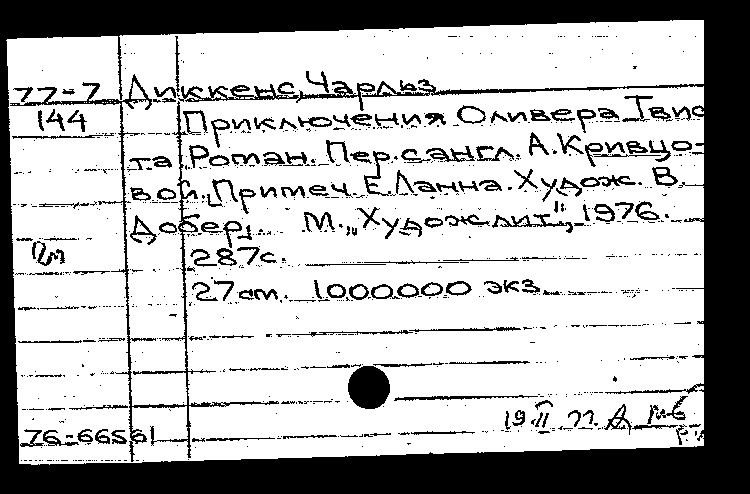 77-7 Диккенс, Чарльз
144 Приключения Оливера Твис
та Роман. Пер. с англ. А. Кривцо-
вой. Примеч. Е. Ланна. Худож. В.
Добер. М. „Худож лит", 1976.
287с.
27 см. 1000000 экз.
19 II 77.
76-66561